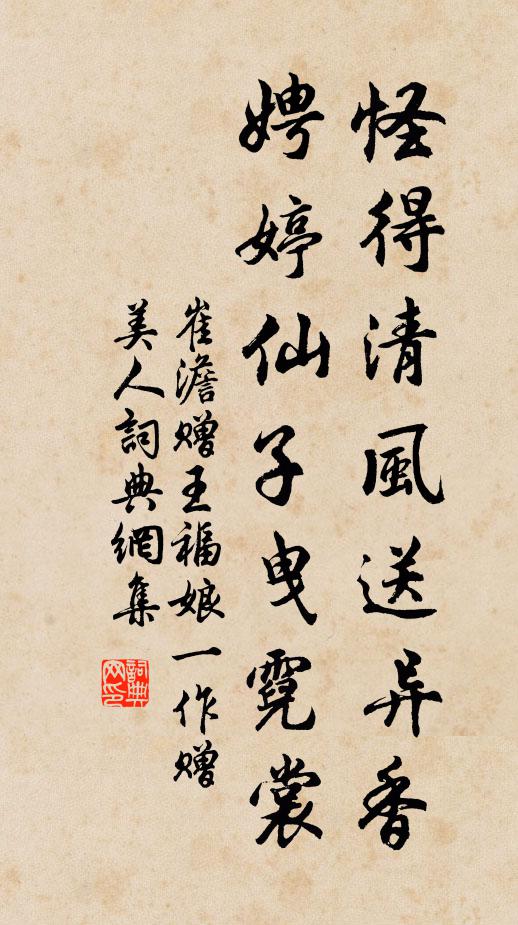 怪得清風送异香
娉婷仙子曳霓裳
崔澹赠王福娘一作赠
美人詞典網集
詞典网印